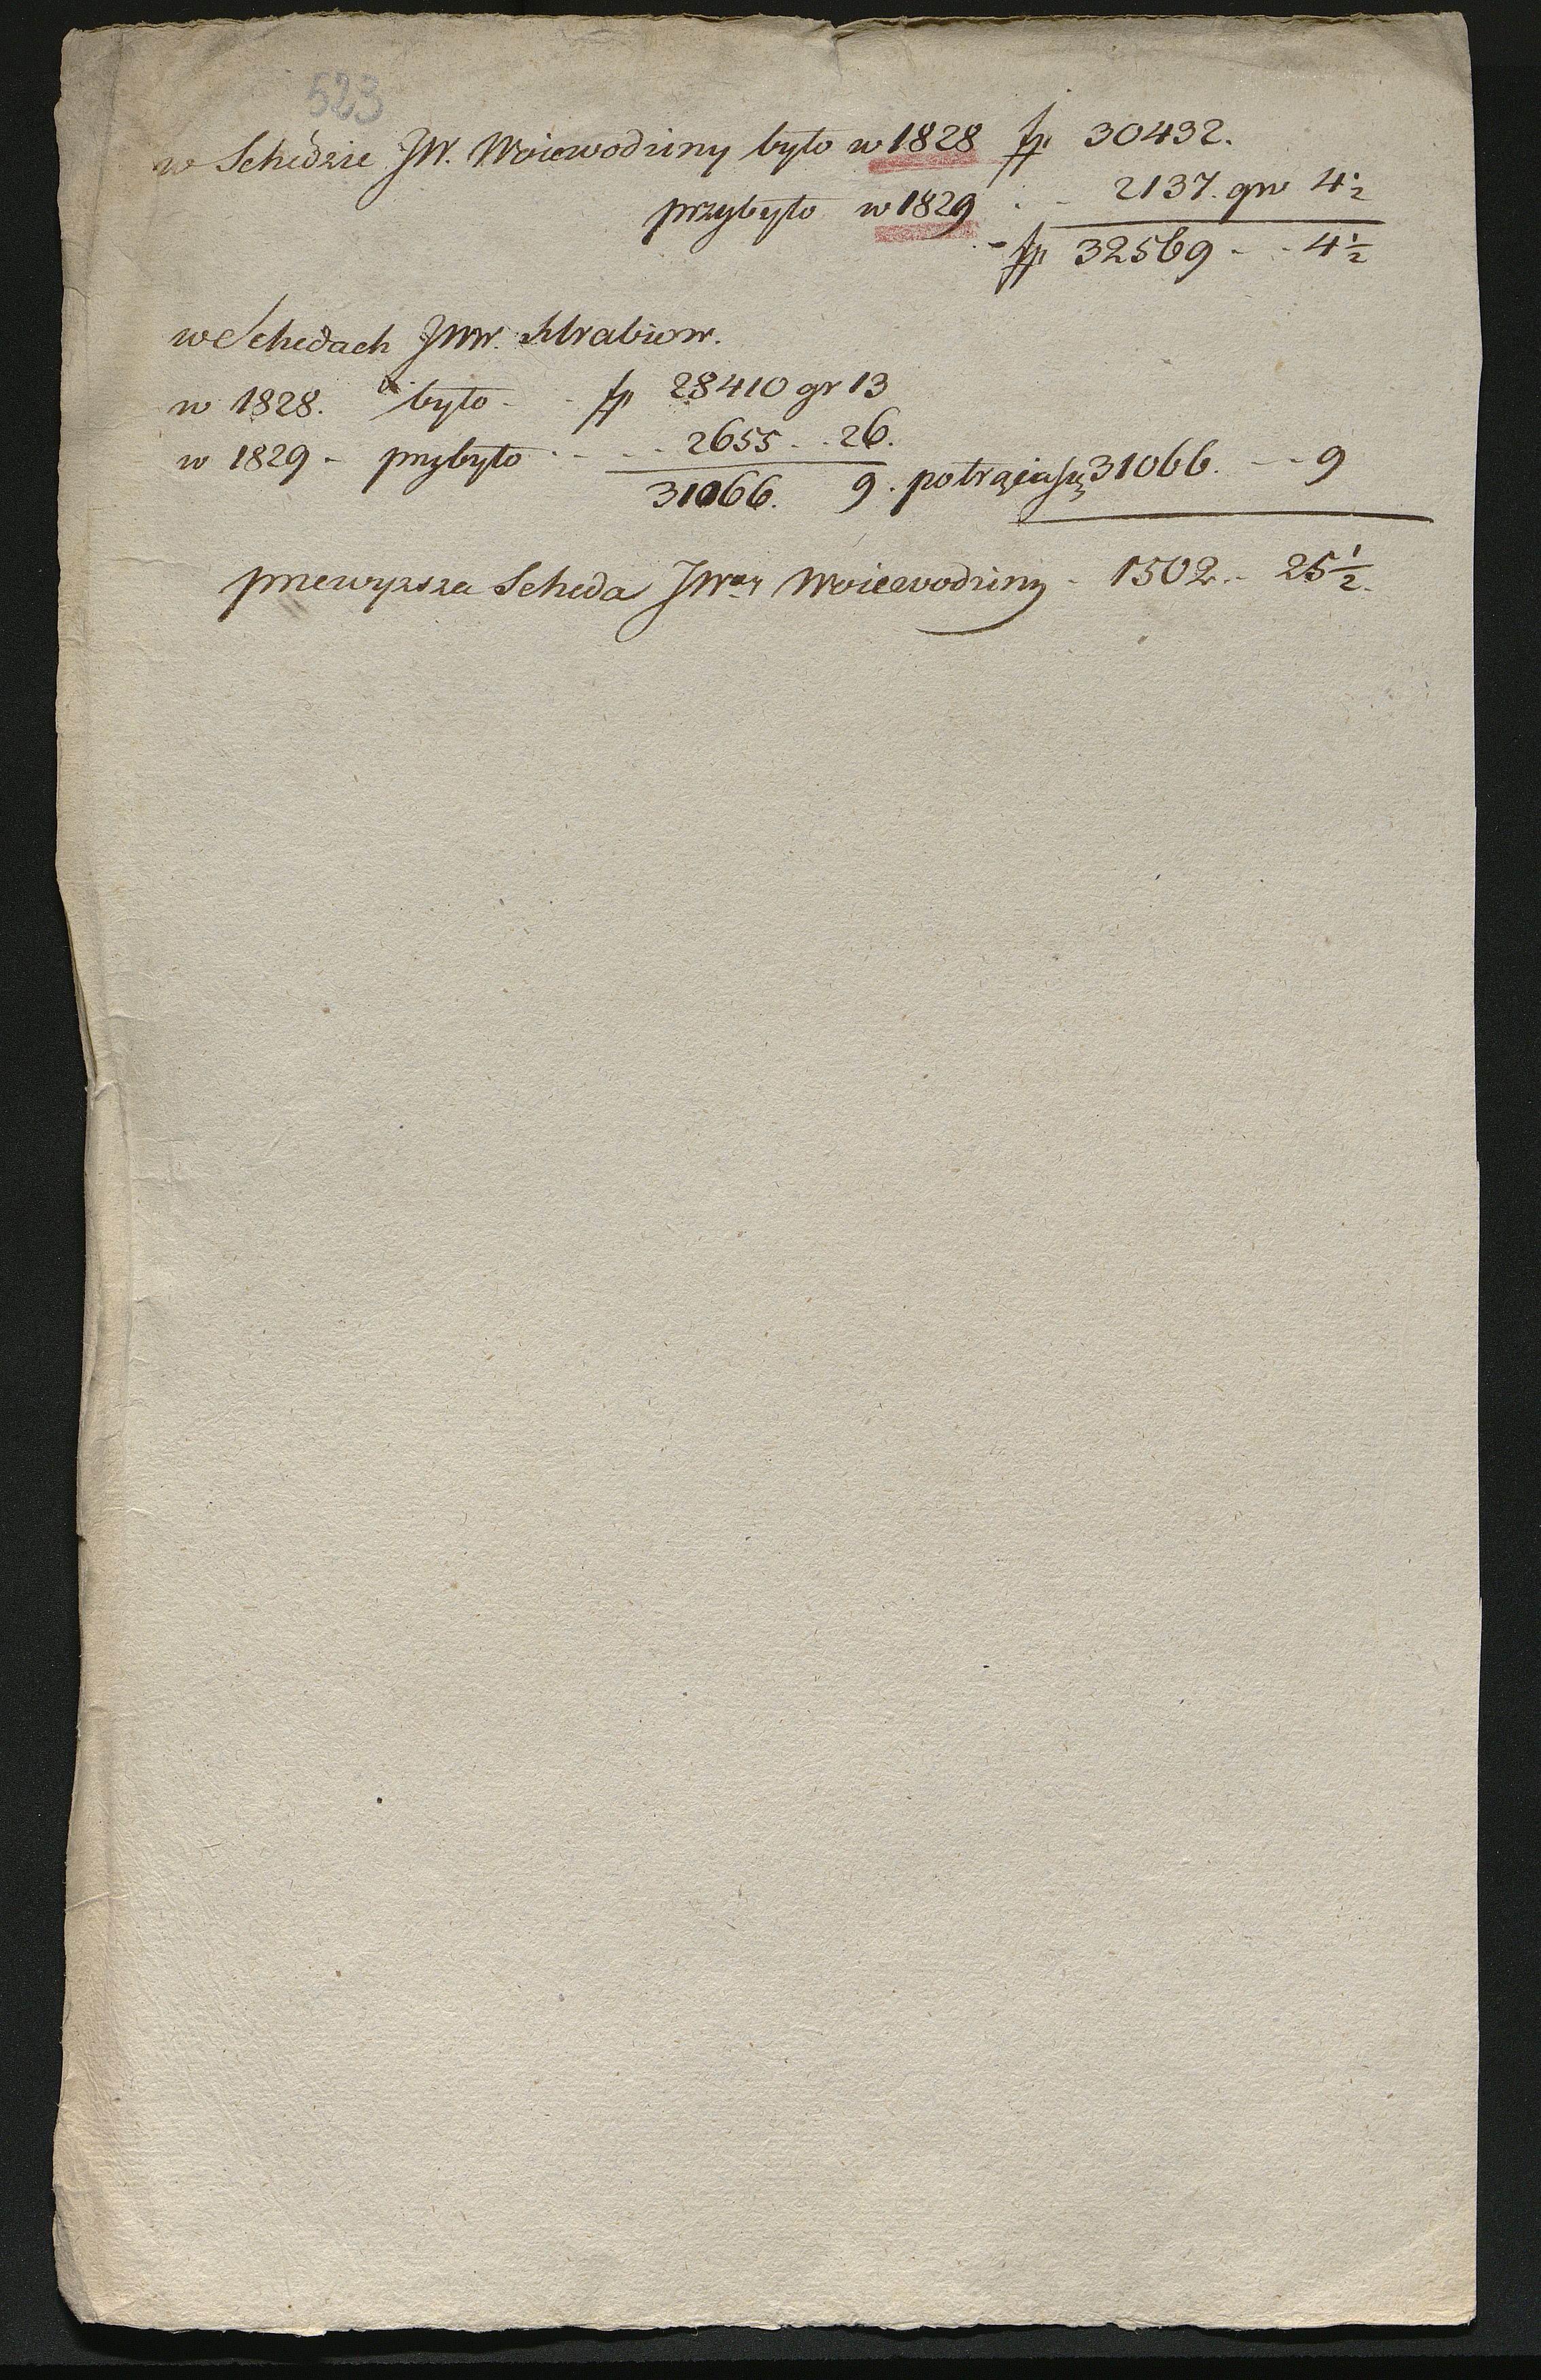 523
w Schedzie JW. Woiewodziny było w 1828 fp 30432.
przybyło w 1829 . - 2137. gro 4 1/2
- fp 32569 - - 4 1/2
w Schedach JWW. Hrabiow.
w 1828. było - - fp 28410 gr 13
w 1829 - przybyło . - . - . 2655 - . 26.
31066. 9. potrąciwszy 31066. - - 9
przewyższa Scheda JWney Woiewodziny - 1502. - 25 1/2.